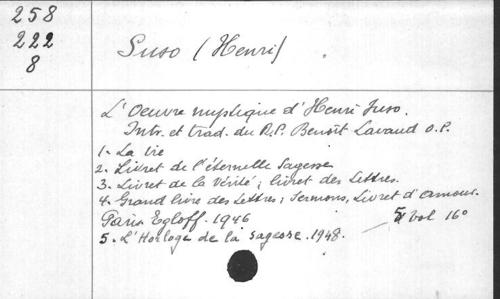 258
222
8
Suso (Henri)
L'Oeuvre mystique d'Henri Suso.
Intr. et trad. du R.P. Benoît Lavaud O.P.
1- La Vie
2- Livret de l'éternelle Sagesse
3. Livret de la Vérité; livret des Lettres.
4. Grand livre des Lettres; Sermons, Livret d'amour.
Paris Egloff. 1946
5 vol 16°
5. L'Horloge de la sagesse. 1948.